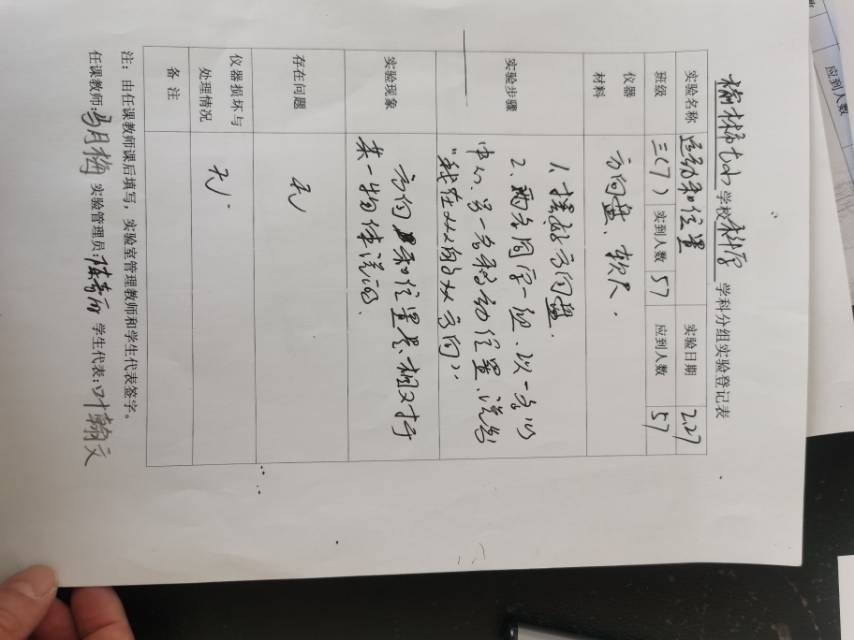 榆林市七小学校科学学科分组实验登记表
实验名称 运动和位置 实验日期 2.27
班级 三(7) 实到人数 57 应到人数 57
仪器材料 方向盘、软尺.
实验步骤
1、摆放方向盘.
2、两名同学一组、以一名为
中心、另一名移动位置、说出
"我在××的××方向".
实验现象
方向和位置是相对于
某一物体说的.
存在问题 无
仪器损坏与处理情况 无.
备注
注：由任课教师课后填写，实验室管理教师和学生代表签字。
任课教师: 马月梅 实验管理员: 学生代表: 叶翰文
应到人数